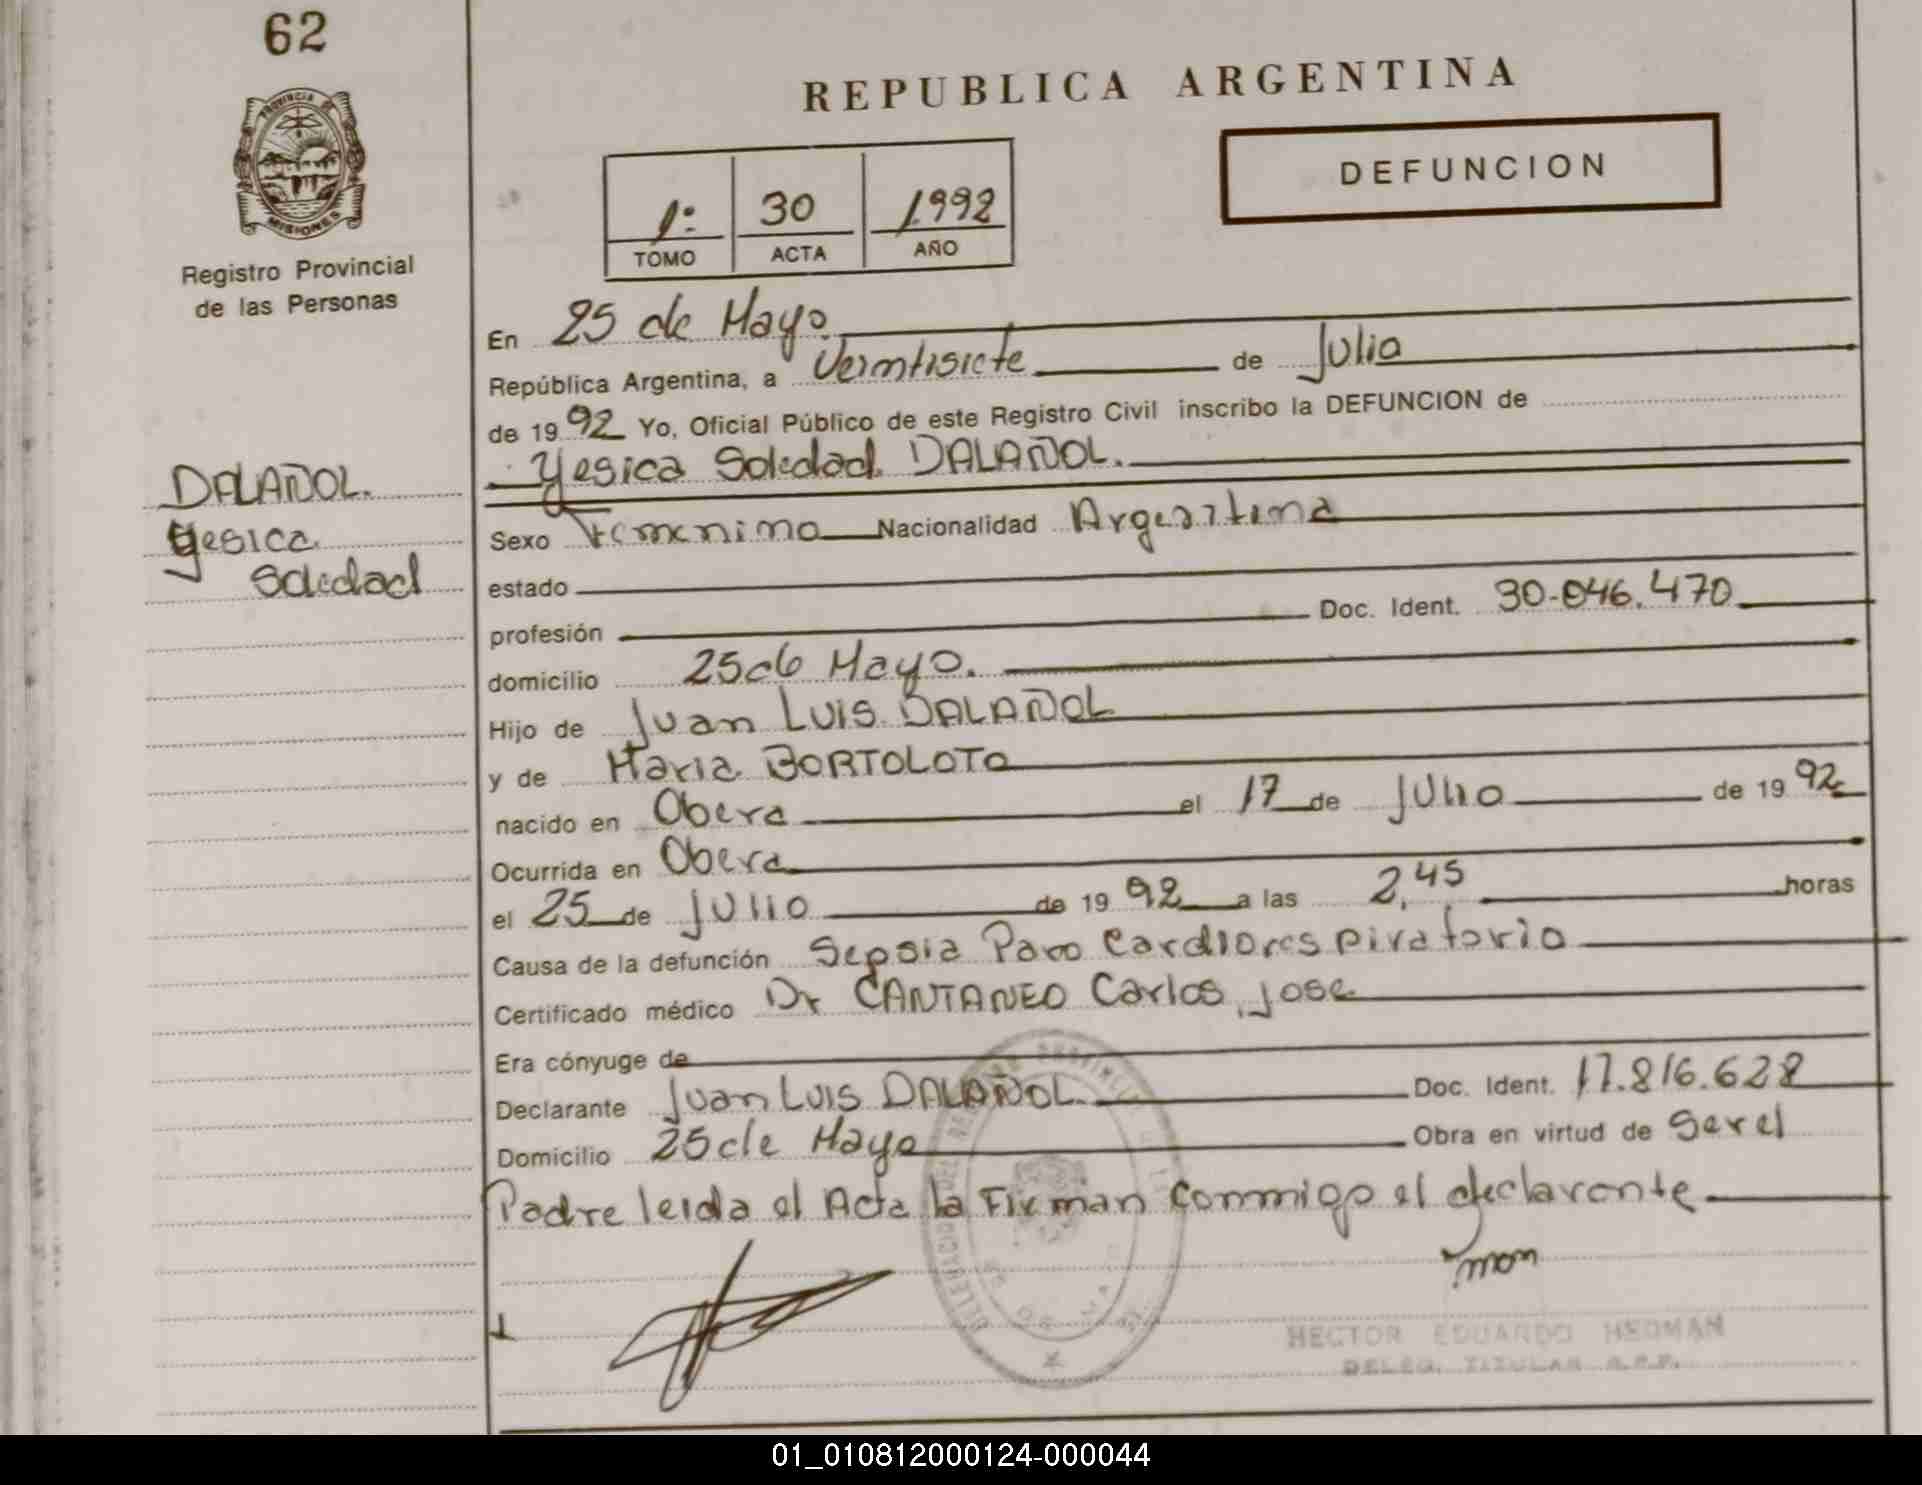 62
PROVINCIA DE
MISIONES
Registro Provincial
de las Personas
DALAÑOL.
Yesica
Soledad
REPUBLICA ARGENTINA
DEFUNCION
1º 30 1992
TOMO ACTA AÑO
En 25 de Mayo.
República Argentina, a Veintisiete de Julio
de 1992 Yo, Oficial Público de este Registro Civil inscribo la DEFUNCION de
Yesica Soledad DALAÑOL.
Sexo Femenino Nacionalidad Argentina
estado
profesión Doc. Ident. 30.046.470
domicilio 25 de Mayo.
Hijo de Juan Luis DALAÑOL
y de Maria BORTOLOTO
nacido en Obera el 17 de Julio de 1992
Ocurrida en Obera
el 25 de Julio de 1992 a las 2,45 horas
Causa de la defunción Sepsia Paro Cardiorespiratorio
Certificado médico Dr CANTANEO Carlos Jose
Era cónyuge de
Declarante Juan Luis DALAÑOL. Doc. Ident. 17.816.628
Domicilio 25 de Mayo Obra en virtud de Ser el
Padre leida el Acta la Firman Conmigo el declarante
HECTOR EDUARDO HEDMAN
DELEG. TITULAR R.P.P.
01_010812000124-000044